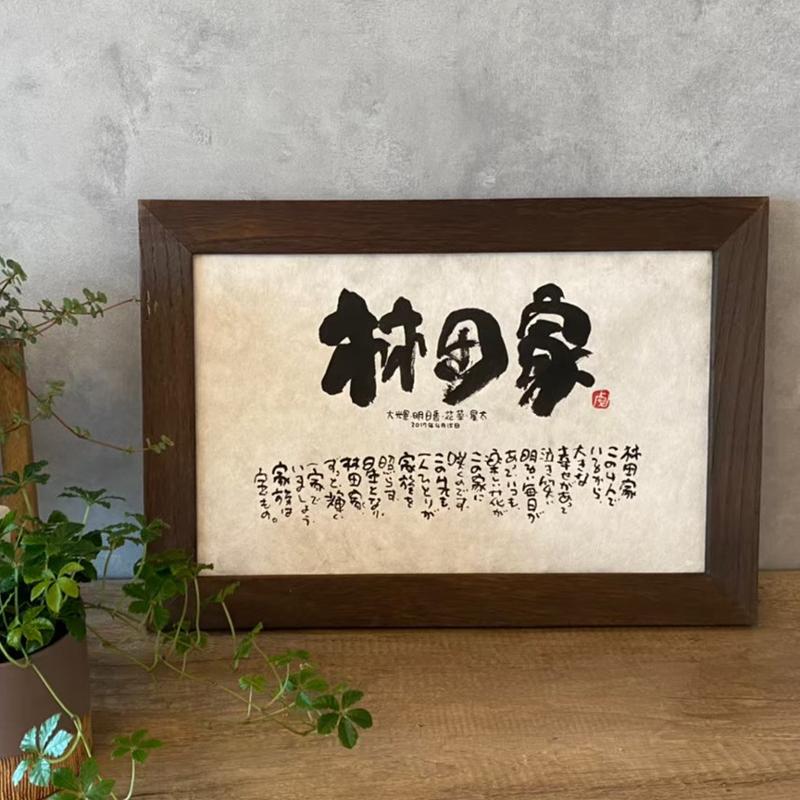 林田家
大輝・明日香・花菜・星太
2017年4月15日
林田家
この4人で
いるから、
大きな
幸せがあって
泣き笑い
明るい毎日が
あって、いつも
楽しい花が
この家に
咲くのです。
この先も、
一人ひとりが
家族を
照らす
星となり、
林田家、
ずっと、輝く
一家で
いましょう。
家族は
宝もの。